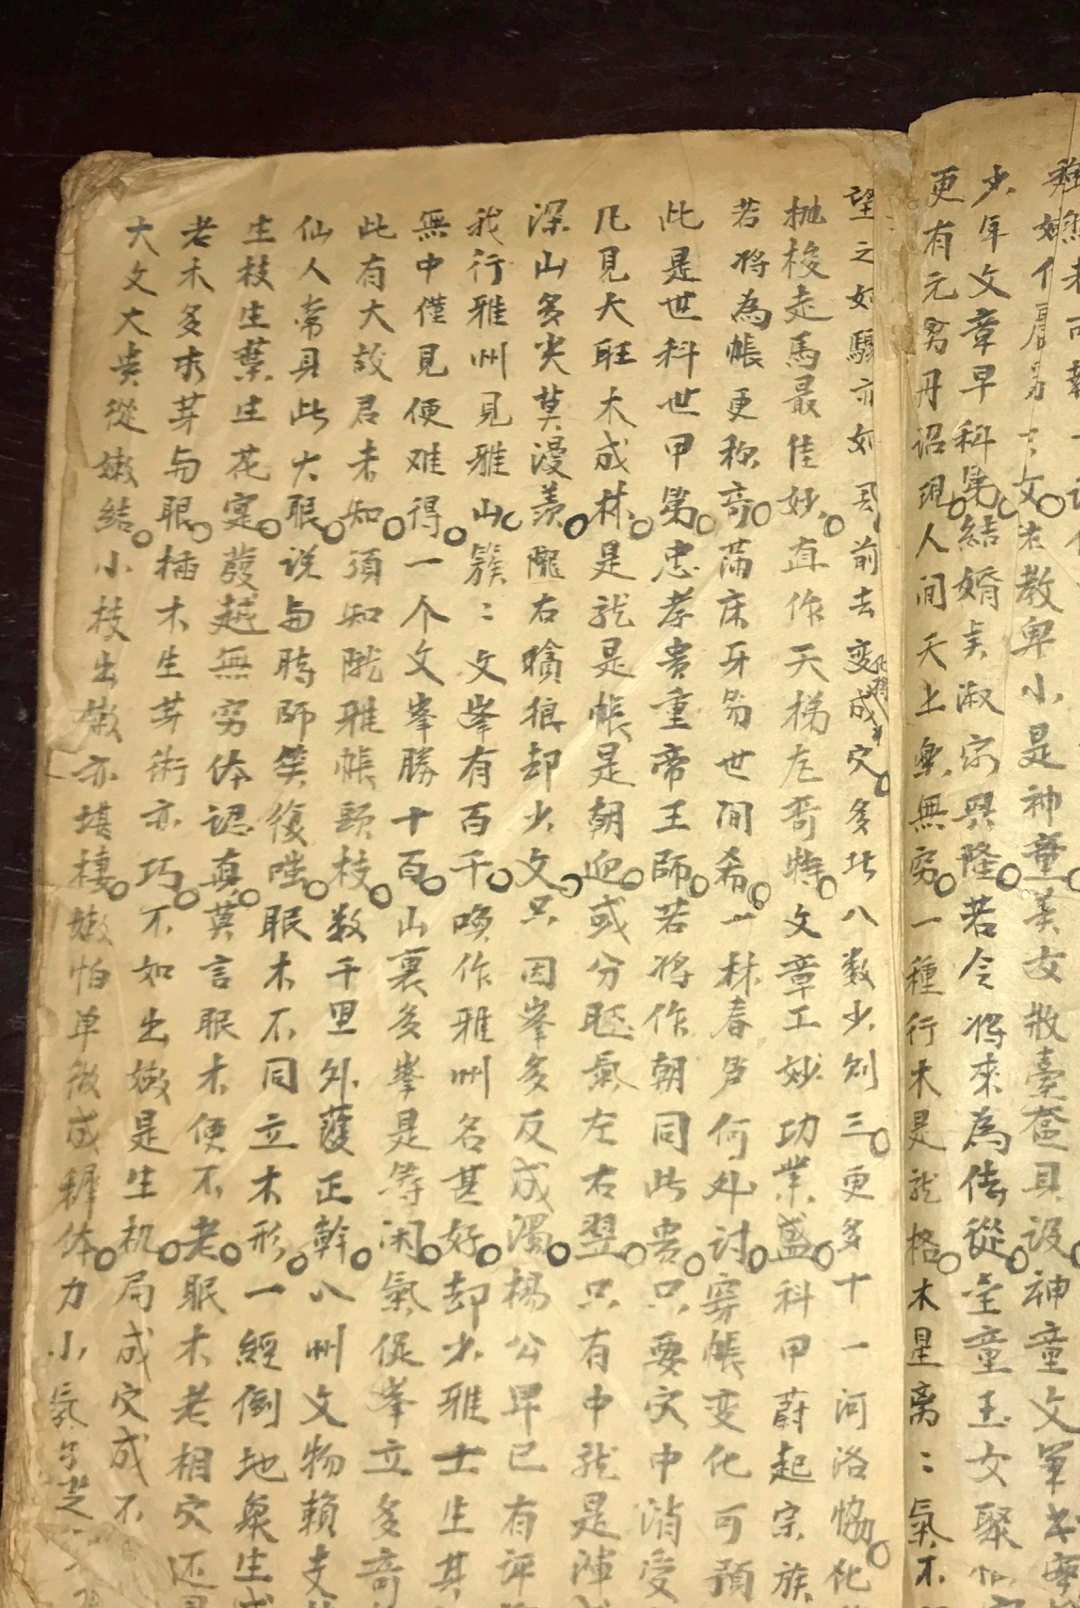 少年文章早科第結婚淑宗興隆若令將來為侍從金童玉女聚
更有元窮丹詔現人間天上樂無窮一種行木是龍格木星离〻氣不
望之如驟亦如前去变成穴多北八数少则三更多十一河洛恊化
抛梭走馬最佳妙直作天梯左哥特文章工妙功業盛科甲蔚起宗族
若將為帳更称奇滿床牙笏世间希一林春笋何外讨穿帳变化可預
此是世科世甲第忠孝贵重帝王師若將作朝同此贵只要穴中消受
凡見大旺木成林是龍是帳是朝迎或分贴氣左右翌只有中龍是陣
深山多尖莫漫羨隴右嶮狼却少文只因峯多反成濁楊公早已有评
我行雅州見雅山簇〻文峯有百千喚作雅州名甚好却少雅士生其
無中僅見便难得一个文峯勝十百山裏多峯是等闲氣促峯立多奇
此有大故君未知須知隴雅帳頸枝数千里外護正幹八州文物賴支
仙人常具此大眼说与時師笑復嗤眠木不同立木形一經倒地氣生
生枝生葉生花寔發越無穷体認真莫言眠木便不老眠木老相穴还
老木多求芽与眼插木生芽術亦巧不如出嫩是生机局成穴成不
大文大贵從嫩結小枝出嫩亦堪棲嫩怕单微成稺体力小氣